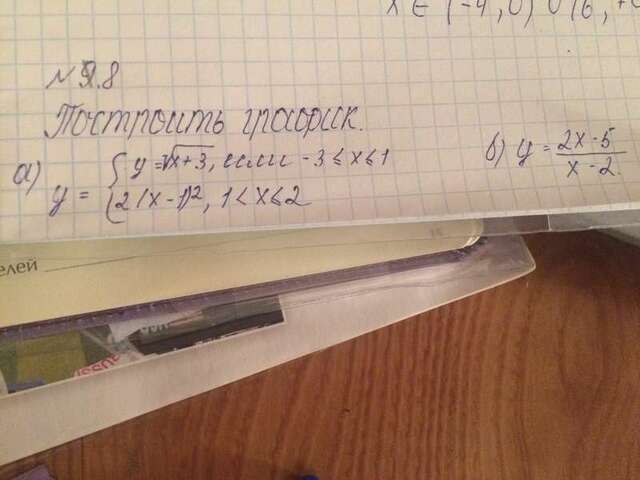 N9.8
Построить график.
а) y = { y = √x+3, если -3 ≤ x ≤ 1
2(x-1)², 1 < x ≤ 2
б) y = 2x-5 / x-2
x ∈ (-4, 0) ∪ (6, +
елей